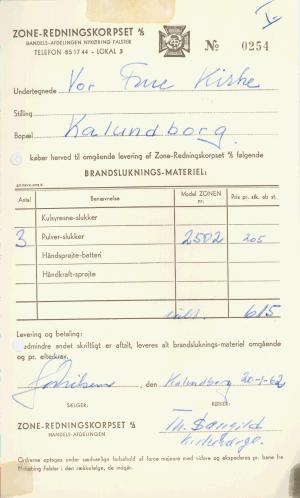 V.
ZONE-REDNINGSKORPSET A/S
HANDELS-AFDELINGEN NYKØBING FALSTER
TELEFON 851744 - LOKAL 3
№ 0254
Undertegnede Vor Frue Kirke
Stilling
Bopæl Kalundborg.
køber herved til omgående levering af Zone-Redningskorpset A/S følgende
BRANDSLUKNINGS-MATERIEL:
Antal Benævnelse Model ZONEN nr. Pris pr. stk. ab st.
Kulsyresne-slukker
3 Pulver-slukker 2502 205
Håndsprøjte-batteri
Håndkraft-sprøjte
ialt. 615
Levering og betaling:
admindre andet skriftligt er aftalt, leveres alt brandsluknings-materiel omgående
og pr. efterkrav.
, den Kalundborg 20-1-62
SÆLGER: KØBER:
ZONE-REDNINGSKORPSET A/S
HANDELS-AFDELINGEN
Th.
Ordrerne optages under sædvanlig forbehold af force majeure med videre og ekspederes pr. bane fra
Nykøbing Falster i den rækkefølge, de indgår.